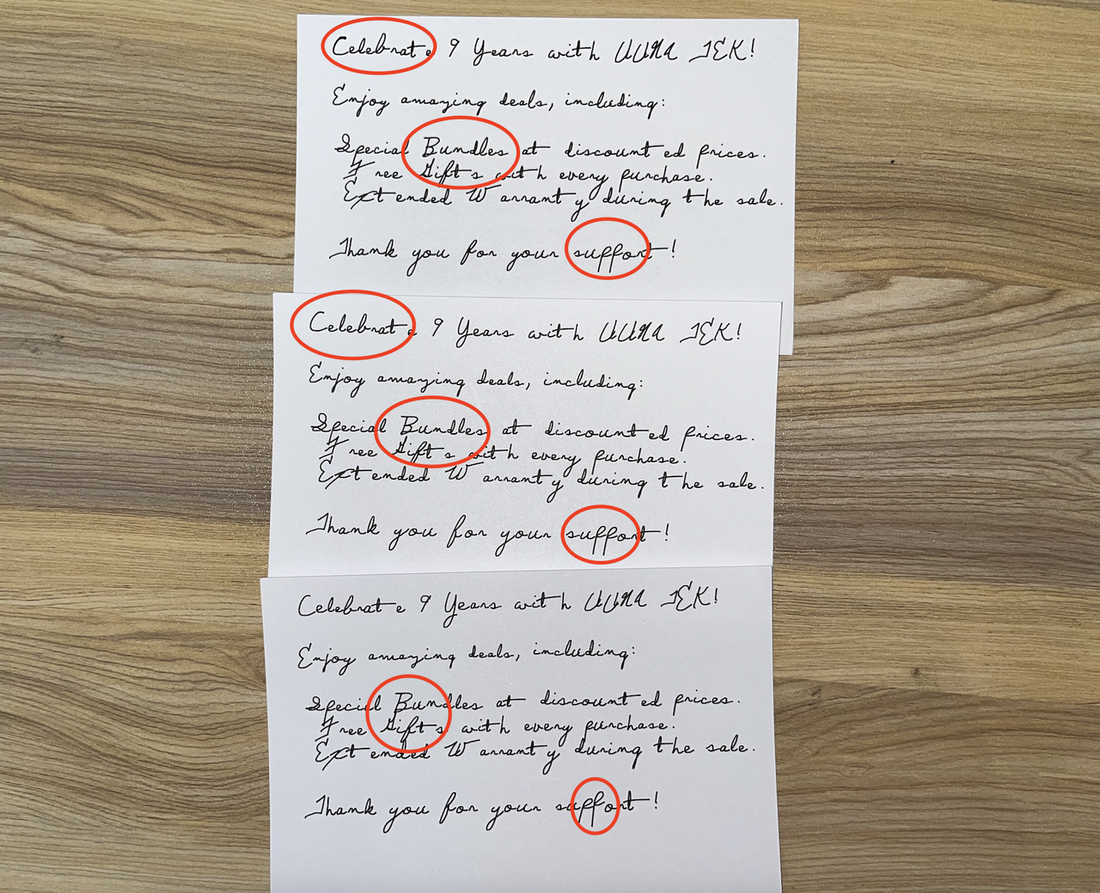 Celebrate 9 Years with UUNA TEK!
Enjoy amazing deals, including:
Special Bundles at discounted prices.
Free Gifts with every purchase.
Extended Warranty during the sale.
Thank you for your support!
Celebrate 9 Years with UUNA TEK!
Enjoy amazing deals, including:
Special Bundles at discounted prices.
Free Gifts with every purchase.
Extended Warranty during the sale.
Thank you for your support!
Celebrate 9 Years with UUNA TEK!
Enjoy amazing deals, including:
Special Bundles at discounted prices.
Free Gifts with every purchase.
Extended Warranty during the sale.
Thank you for your support!